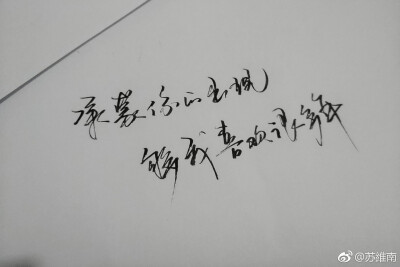 承蒙你的出现
够我喜欢许多年
@苏维南